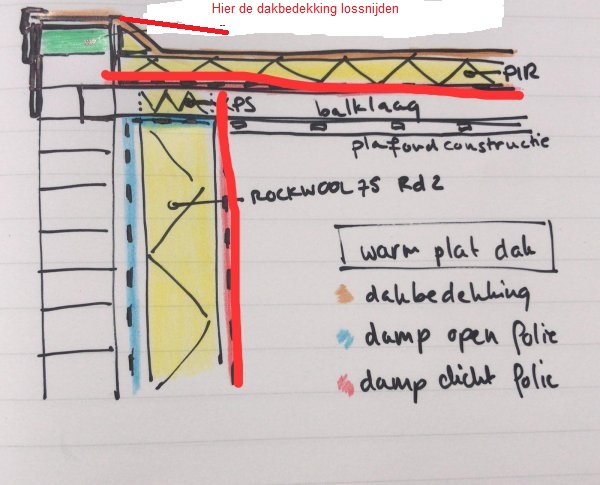 Hier de dakbedekking lossnijden
PIR
PS
balklaag
plafondconstructie
ROCKWOOL 75 Rd 2
warm plat dak
dakbedekking
damp open folie
damp dicht folie